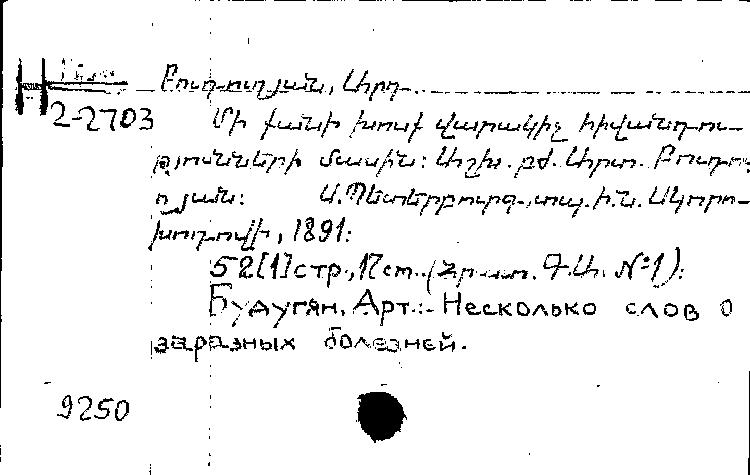 H
2-2703
Բուդուղյան, Արդ.
Մի քանի խոսք վարակիչ հիվանդու-
թյունների մասին: Աշխ. բժ. Արտ. Բուդու
ղյան: Ս.Պետերբուրգ, տպ. Ի.Ն. Սկորո-
խոդովի, 1891:
52[1]стр., 17см. (Հր. Գ.Ա. №1):
Будугян, Арт.:- Несколько слов о
заразных болезней.
9250